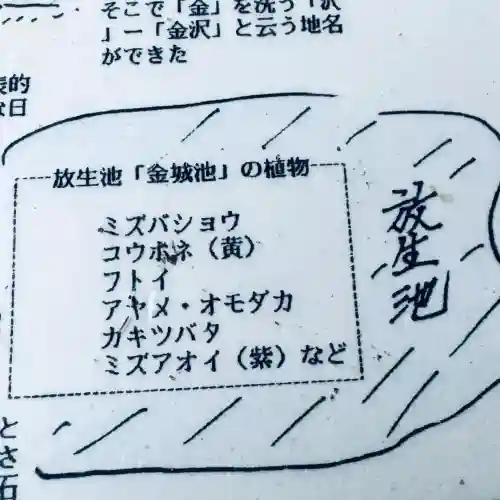 そこで「金」を洗う「沢
」ー「金沢」と云う地名
ができた
表的
な日
放生池「金城池」の植物
ミズバショウ
コウホネ（黄）
フトイ
アヤメ・オモダカ
カキツバタ
ミズアオイ（紫）など
放生池
と
さ
石